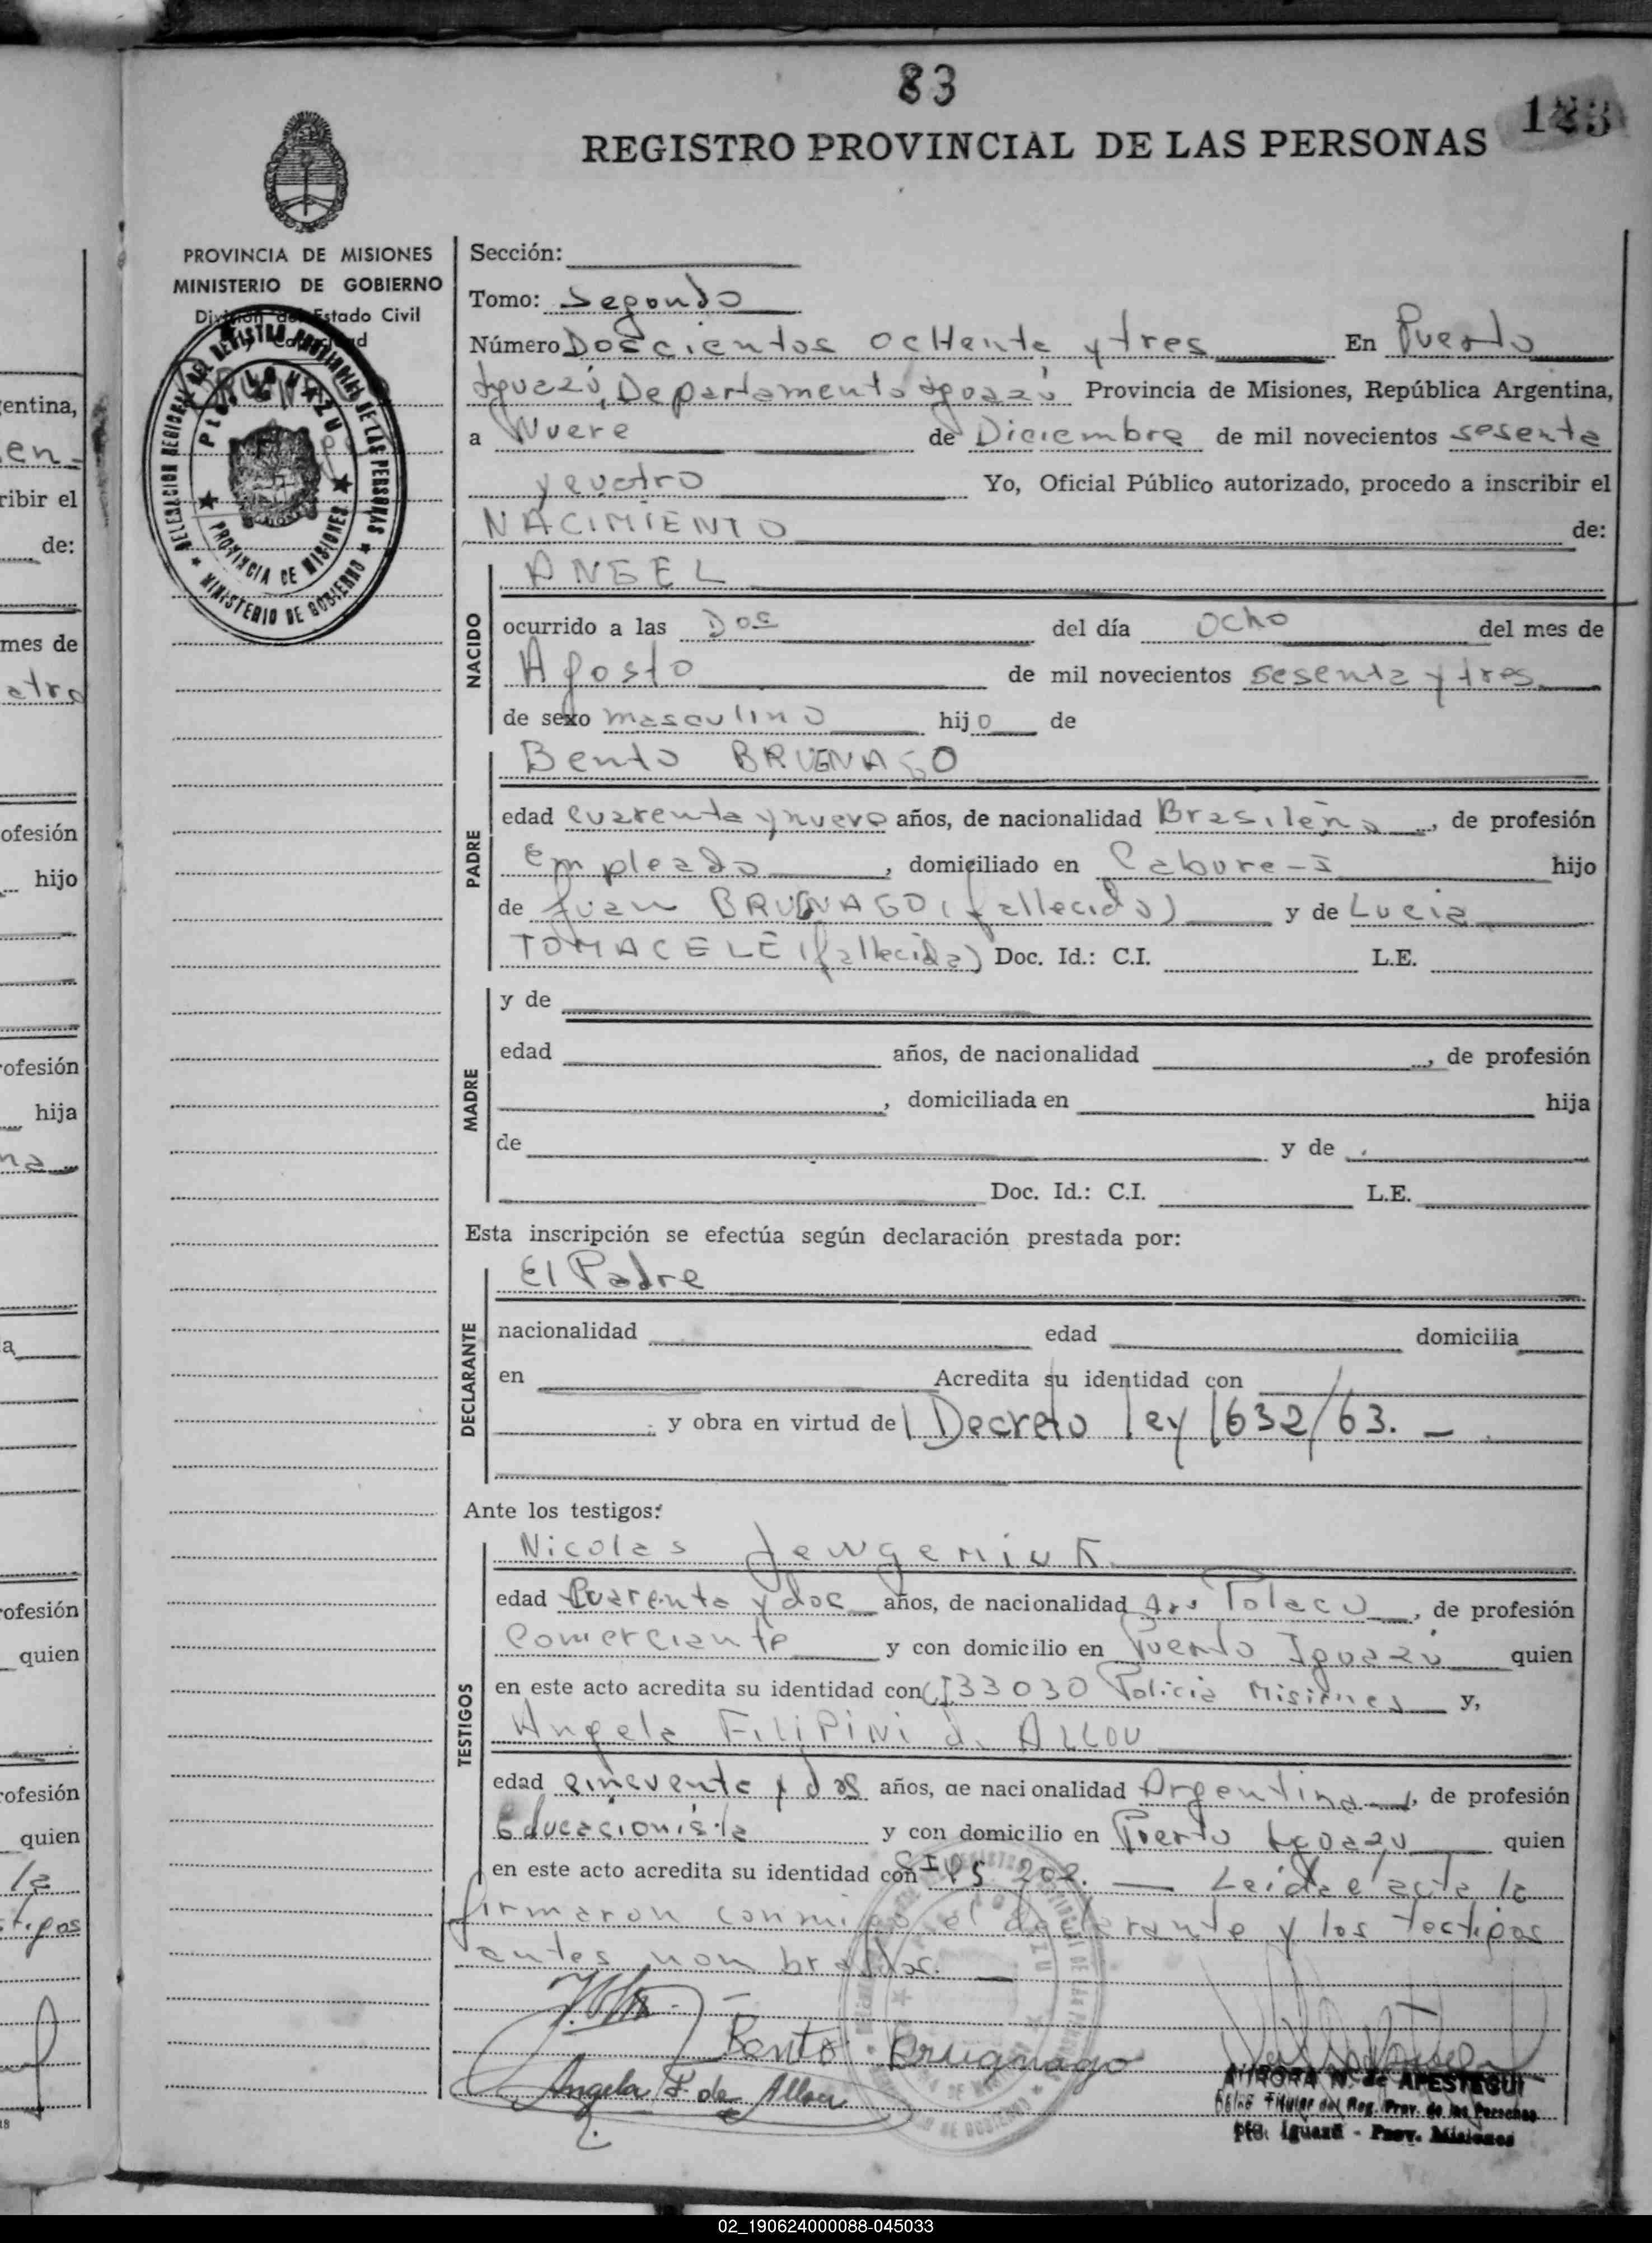 83
123
REGISTRO PROVINCIAL DE LAS PERSONAS
PROVINCIA DE MISIONES
MINISTERIO DE GOBIERNO
División del Estado Civil
y Capacidad
DELEGACION REGIONAL DEL REGISTRO PROVINCIAL DE LAS PERSONAS
PTO. IGUAZU
PROVINCIA DE MISIONES
MINISTERIO DE GOBIERNO
Sección:
Tomo: Segundo
Número Doscientos ocHenta y tres En Puerto
Iguazú, Departamento Iguazú Provincia de Misiones, República Argentina,
a Nueve de Diciembre de mil novecientos sesenta
y cuatro Yo, Oficial Público autorizado, procedo a inscribir el
NACIMIENTO de:
NACIDO
ANGEL
ocurrido a las Dos del día Ocho del mes de
Agosto de mil novecientos sesenta y tres
de sexo masculino hijo de
PADRE
Bento BRUGNAGO
edad cuarenta y nueve años, de nacionalidad Brasileña, de profesión
Empleado, domiciliado en Cabure-I hijo
de Juan BRUGNAGO (fallecido) y de Lucia
TOMACELÉ (fallecida) Doc. Id.: C.I. L.E.
MADRE
y de
edad años, de nacionalidad , de profesión
, domiciliada en hija
de y de
Doc. Id.: C.I. L.E.
Esta inscripción se efectúa según declaración prestada por:
DECLARANTE
El Padre
nacionalidad edad domicilia
en Acredita su identidad con
y obra en virtud de Decreto ley 1632/63. —
Ante los testigos:
TESTIGOS
Nicolas
edad Cuarenta y dos años, de nacionalidad Polaco, de profesión
Comerciante y con domicilio en Puerto Iguazú quien
en este acto acredita su identidad con CI 33030 Policia Misiones y,
Angela FILIPINI d. ALLOU
edad cincuenta y dos años, de nacionalidad Argentina, de profesión
Educacionista y con domicilio en Puerto Iguazú quien
en este acto acredita su identidad con 202. — Leida el acta la
firmaron conmigo el declarante y los testigos
antes nombrados. —
Bento Brugnago
Angela F. de Allou
AURORA N. de APESTEGUI
Deleg. Titular del Reg. Prov. de las Personas
Pto. Iguazú - Prov. Misiones
02_190624000088-045033